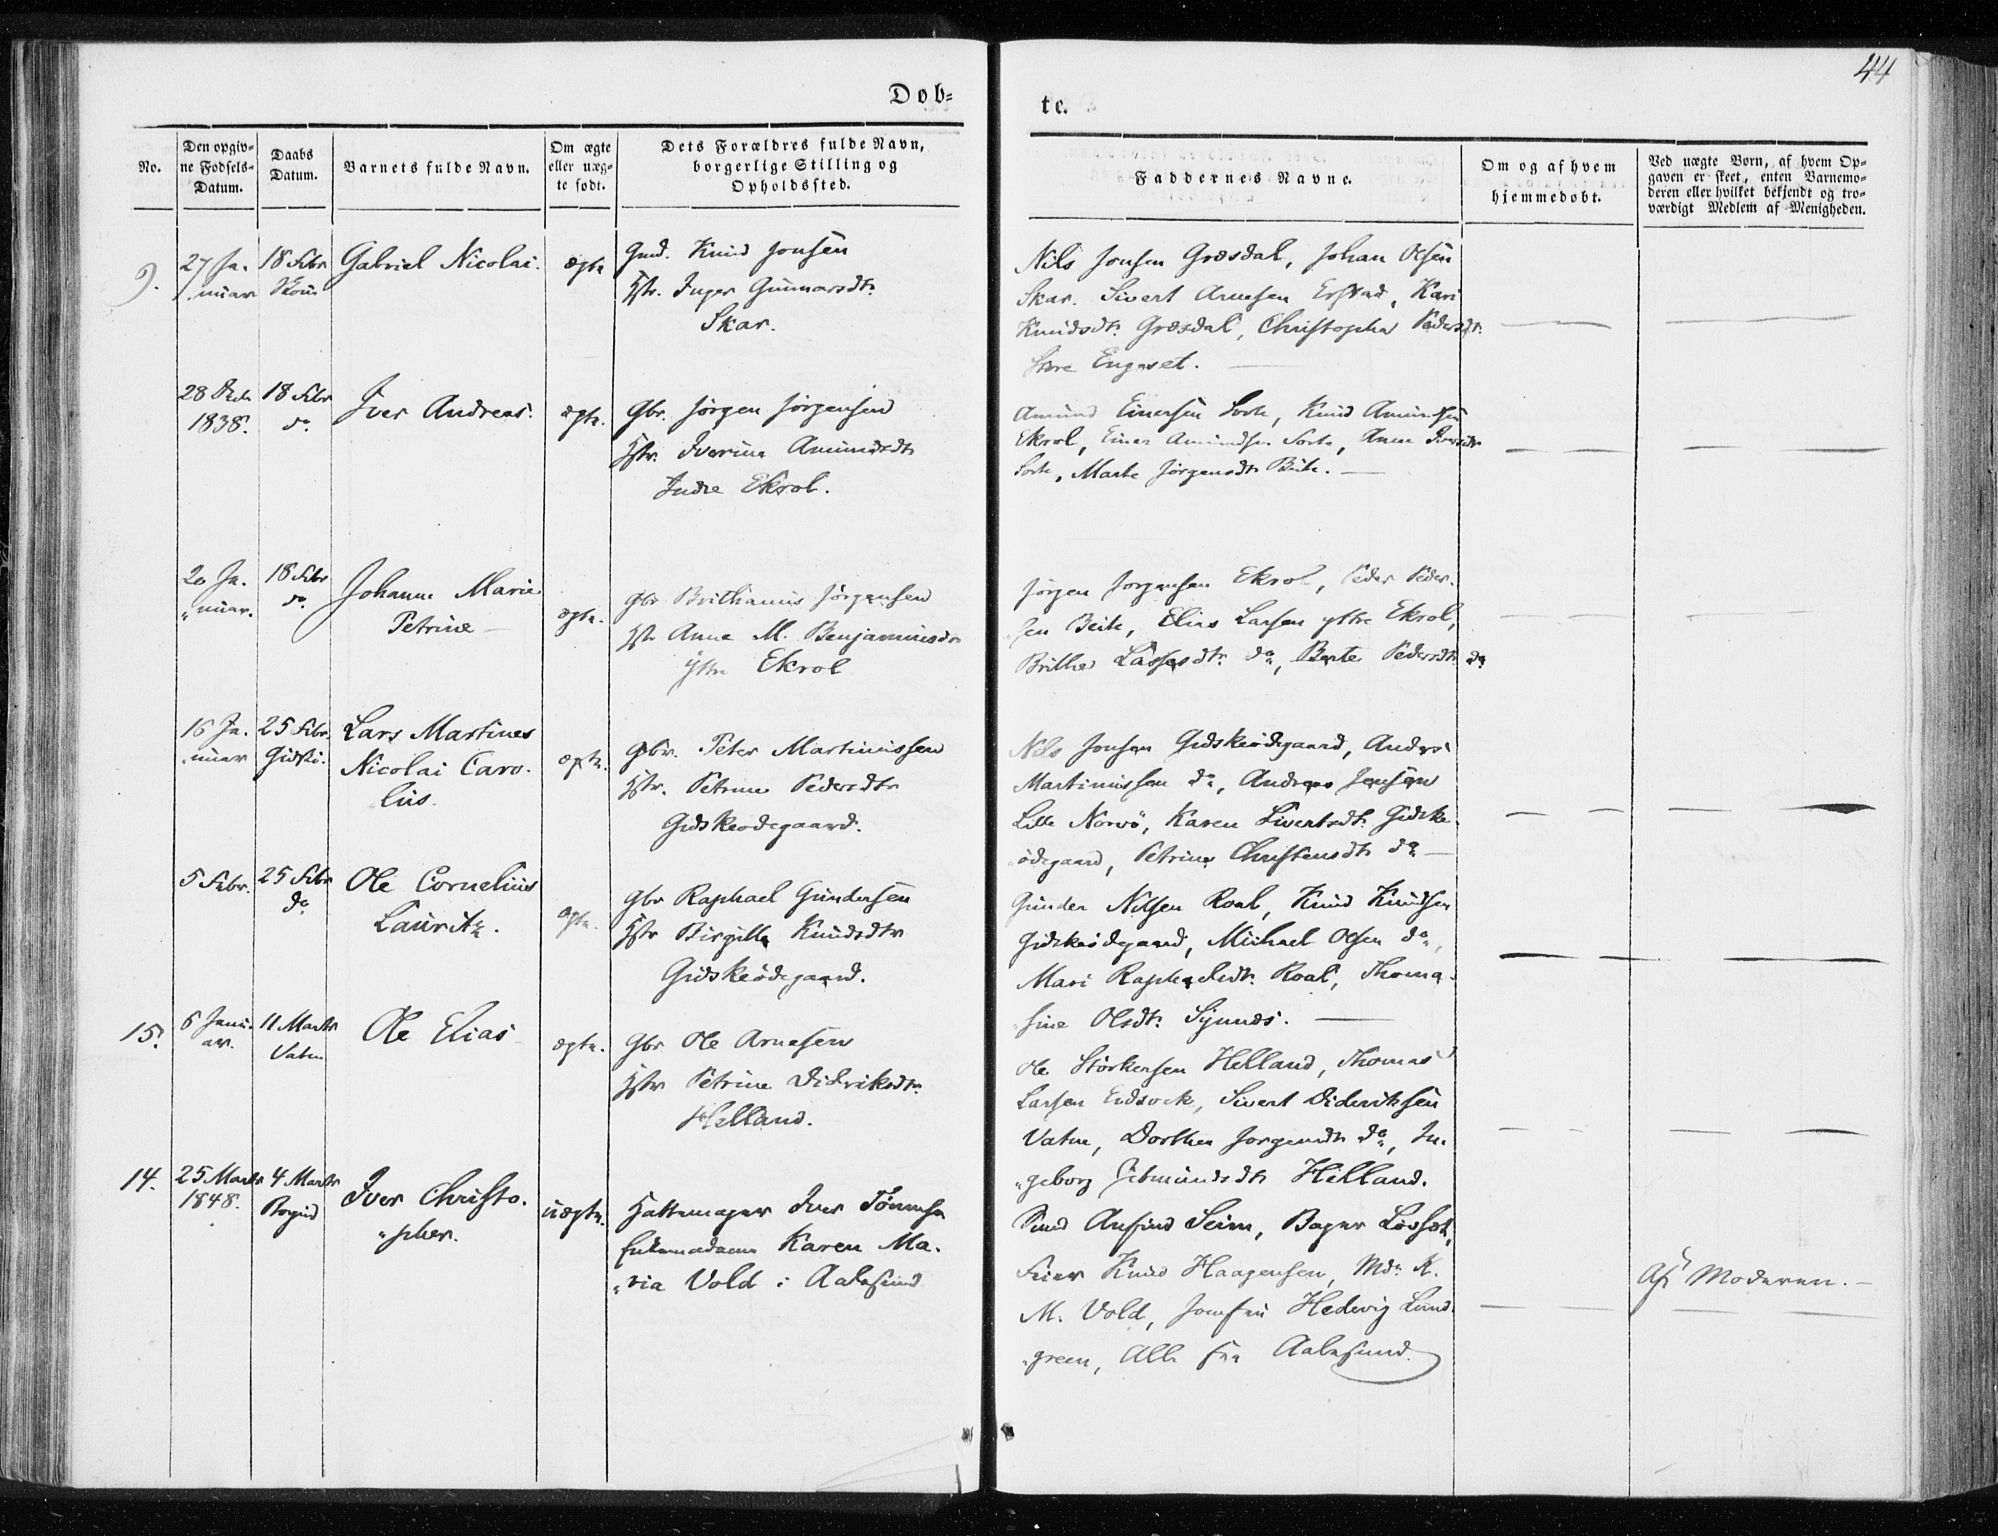 44
Døb-
te.
No.
Den opgiv-
ne Fødsels-
Datum.
Daabs
Datum.
Barnets fulde Navn.
Om ægte
eller uæg-
te født.
Dets Forældres fulde Navn,
borgerlige Stilling og
Opholdssted.
Faddernes Navne.
Om og af hvem
hjemmedøbt.
Ved uægte Børn, af hvem Op-
gaven er skeet, enten Barnemo-
deren eller hvilket bekjendt og tro-
værdigt Medlem af Menigheden.
9.
27 Ja-
nuar
18 Febr
Gabriel Nicolai.
ægte
Gmd. Knud Jonsen
Hstr. Inger Gunnarsdtr.
Skar.
Nils Jonsen Græsdal, Johan Olsen
Skar. Sivert Arnesen Erstad, Kari
Knudsdtr. Græsdal, Christopha Pedersdtr.
Store Engeset.
28 Decbr
1838.
18 Febr
do
Iver Andreas.
ægte.
Gbr. Jørgen Jørgensen
Hstr. Iverine Amundsdtr
Indre Ekrol.
Amund Einersen Sorte, Knud Amundsen
Ekrol, Einer Amundsen Sorte, Anne Iversdtr
Sorte, Marte Jørgensdtr Beite.
20 Ja-
nuar.
18 Febr
do
Johanne Marie
Petrine
ægte.
Gbr Brithanius Jørgensen
Hstr Anne M. Benjaminsdtr
Yttre Ekrol
Jørgen Jørgensen Ekrol, Peder Peder-
sen Beite, Elias Larsen yttre Ekrol,
Brithe Lassesdtr. do, Berte Pedersdtr. do
16 Ja-
nuar
25 Febr.
Gidske.
Lars Martines
Nicolai Caro-
lus.
ægte.
Gbr. Peter Martinussen
Hstr. Petrine Pedersdtr
Gidskeødegaard.
Nils Jonsen Gidskeødegaard, Anders
Martinussen do, Andreas Jensen
Lille Norvø, Karen Sivertsdtr. Gidske-
ødegaard, Petrine Christensdtr do
5 Febr.
25 Febr
do
Ole Cornelius
Lauritz.
ægte.
Gbr Raphael Gundersen
Hstr Birgitte Knudsdtr
Gidskeødegaard.
Gunder Nilsen Roal, Knud Knudsen
Gidskeødegaard, Michael Olsen do,
Mari Raphaelsdtr. Roal, Thoma-
sine Olsdtr. Synnes.
15.
6 Janu-
ar.
11 Marts
Vatne
Ole Elias
ægte.
Gbr Ole Arnesen
Hstr Petrine Didriksdtr.
Helland.
Ole Størkersen Helland, Thomas
Larsen Eidsvik, Sivert Dideriksen
Vatne, Dorthea Jørgensdtr do, In-
geborg Sibmundsdtr Helland.
14.
25 Marts
1848.
4 Marts
Borgund
Iver Christo-
pher.
uægte.
Hattemager Iver Tønnesen
Enkemadame Karen Ma-
ria Vold i Aalesund
Smed Anfind Seim, Bager Løvset,
Feier Knud Haagensen, Md. K.
M. Vold, Jomfru Hedvig Lund-
green, Alle fra Aalesund.
Af Moderen.